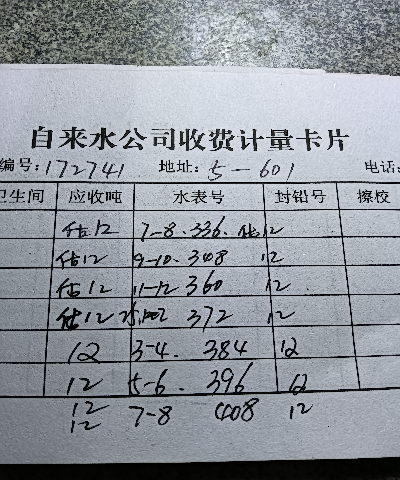 自来水公司收费计量卡片
编号:172741 地址:5-601 电话:
卫生间 应收吨 水表号 封铅号 擦校
估12 7-8. 336. 估12
估12 9-10. 348 12
估12 11-12 360 12
估12 372 12
12 3-4. 384 12
12 5-6. 396 12
12 7-8 408 12
12